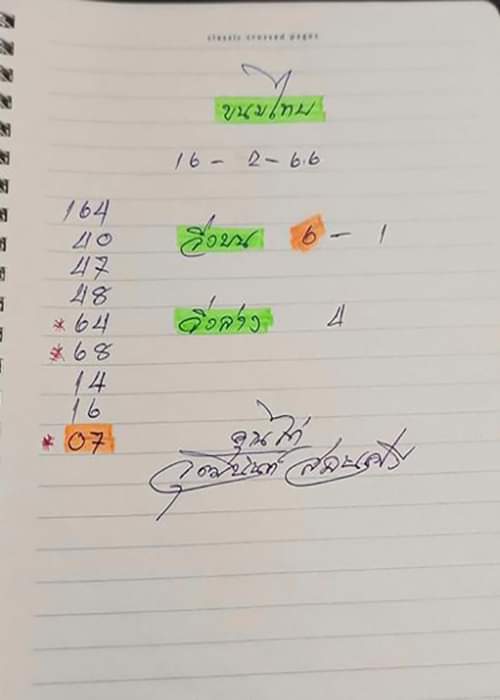 classic crossed pages
ขนมไทย
16 - 2 - 66
164
40
วิ่งบน 6 - 1
47
48
* 64
วิ่งล่าง 4
* 68
14
16
* 07